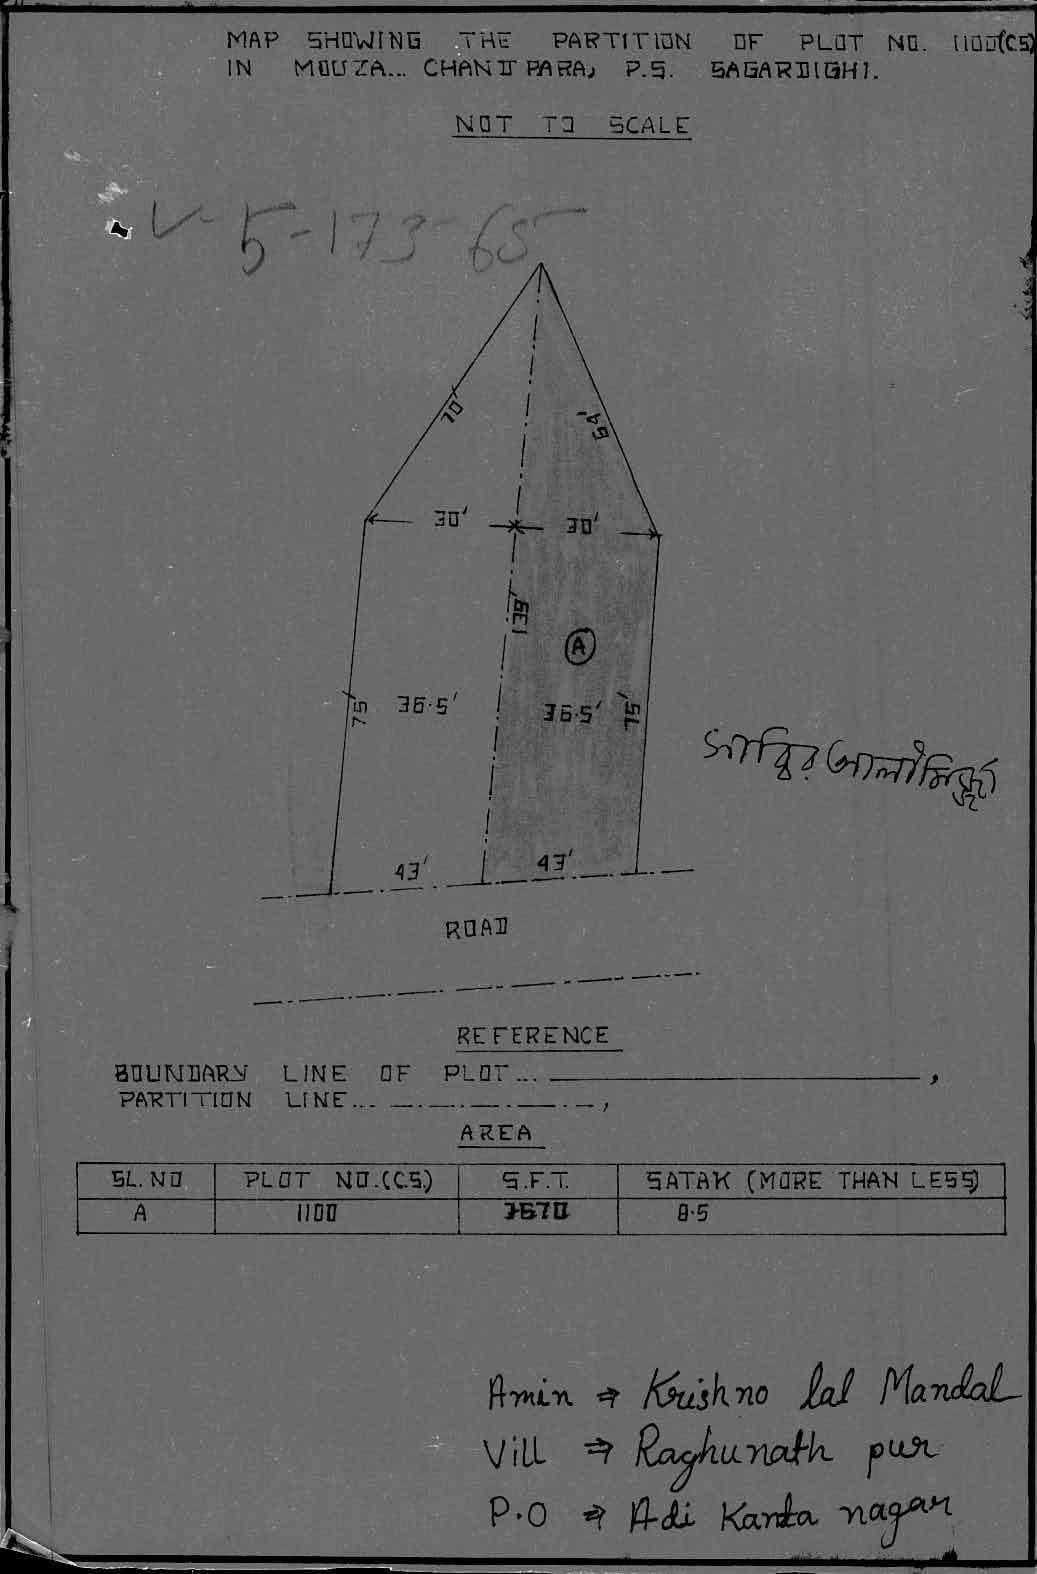 MAP SHOWING THE PARTITION OF PLOT NO. 1100(CS)
IN MOUZA... CHANDPARA, P.S. SAGARDIGHI.
NOT TO SCALE
V-5-173-65
70'
69'
30'
30'
139'
A
75'
36.5'
36.5'
75'
সাব্বির আলী মির্জ্জা
43'
43'
ROAD
REFERENCE
BOUNDARY LINE OF PLOT... ,
PARTITION LINE... ,
AREA
SL. NO. PLOT NO.(C.S.) S.F.T. SATAK (MORE THAN LESS)
A 1100 3670 8.5
Amin ⇒ Krishno lal Mandal
Vill ⇒ Raghunath pur
P.O ⇒ Adi Kanta nagar